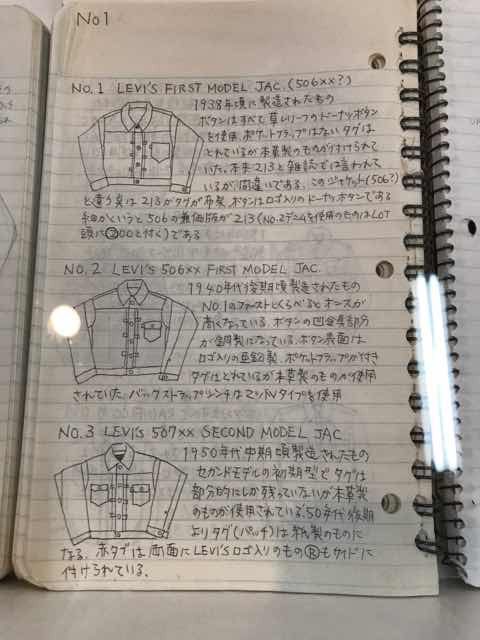 No1
NO.1 LEVI'S FIRST MODEL JAC.(506××?)
1938年頃に製造されたもの
ボタンはすべて草レリーフのドーナツボタン
を使用、ポケットフラップはない タグは
とれているが本革製のものが付けられて
いた。本来213と雑誌では言われて
いるが、間違いである。このジャケット(506?)
と違う点は213がタグが布製、ボタンはロゴ入りのドーナツボタンである
細かくいうと506の廉価版が213(No.2デニムを使用のものはLOT
頭に②00と付く)である
NO.2 LEVI'S 506×× FIRST MODEL JAC.
1940年代後期頃製造されたもの
NO.1のファーストとくらべると オンスが
高くなっている、ボタンの凹合部分
が銅製になっている、ボタン表面は
ロゴ入りの亜鉛製、ポケットフラップが付き
タグはとれているが本革製のものが使用
されていた、バックストラップシンチは
NO.3 LEVI'S 507×× SECOND MODEL JAC.
1950年代中期頃製造されたもの
セカンドモデルの初期型で タグは
部分的にしか残っていないが本革製
のものが使用されている、50年代後期
よりタグ(パッチ)は紙製のものに
なる。赤タブは両面にLEVI'Sロゴ入りのものⓇもサイドに
付けられている。